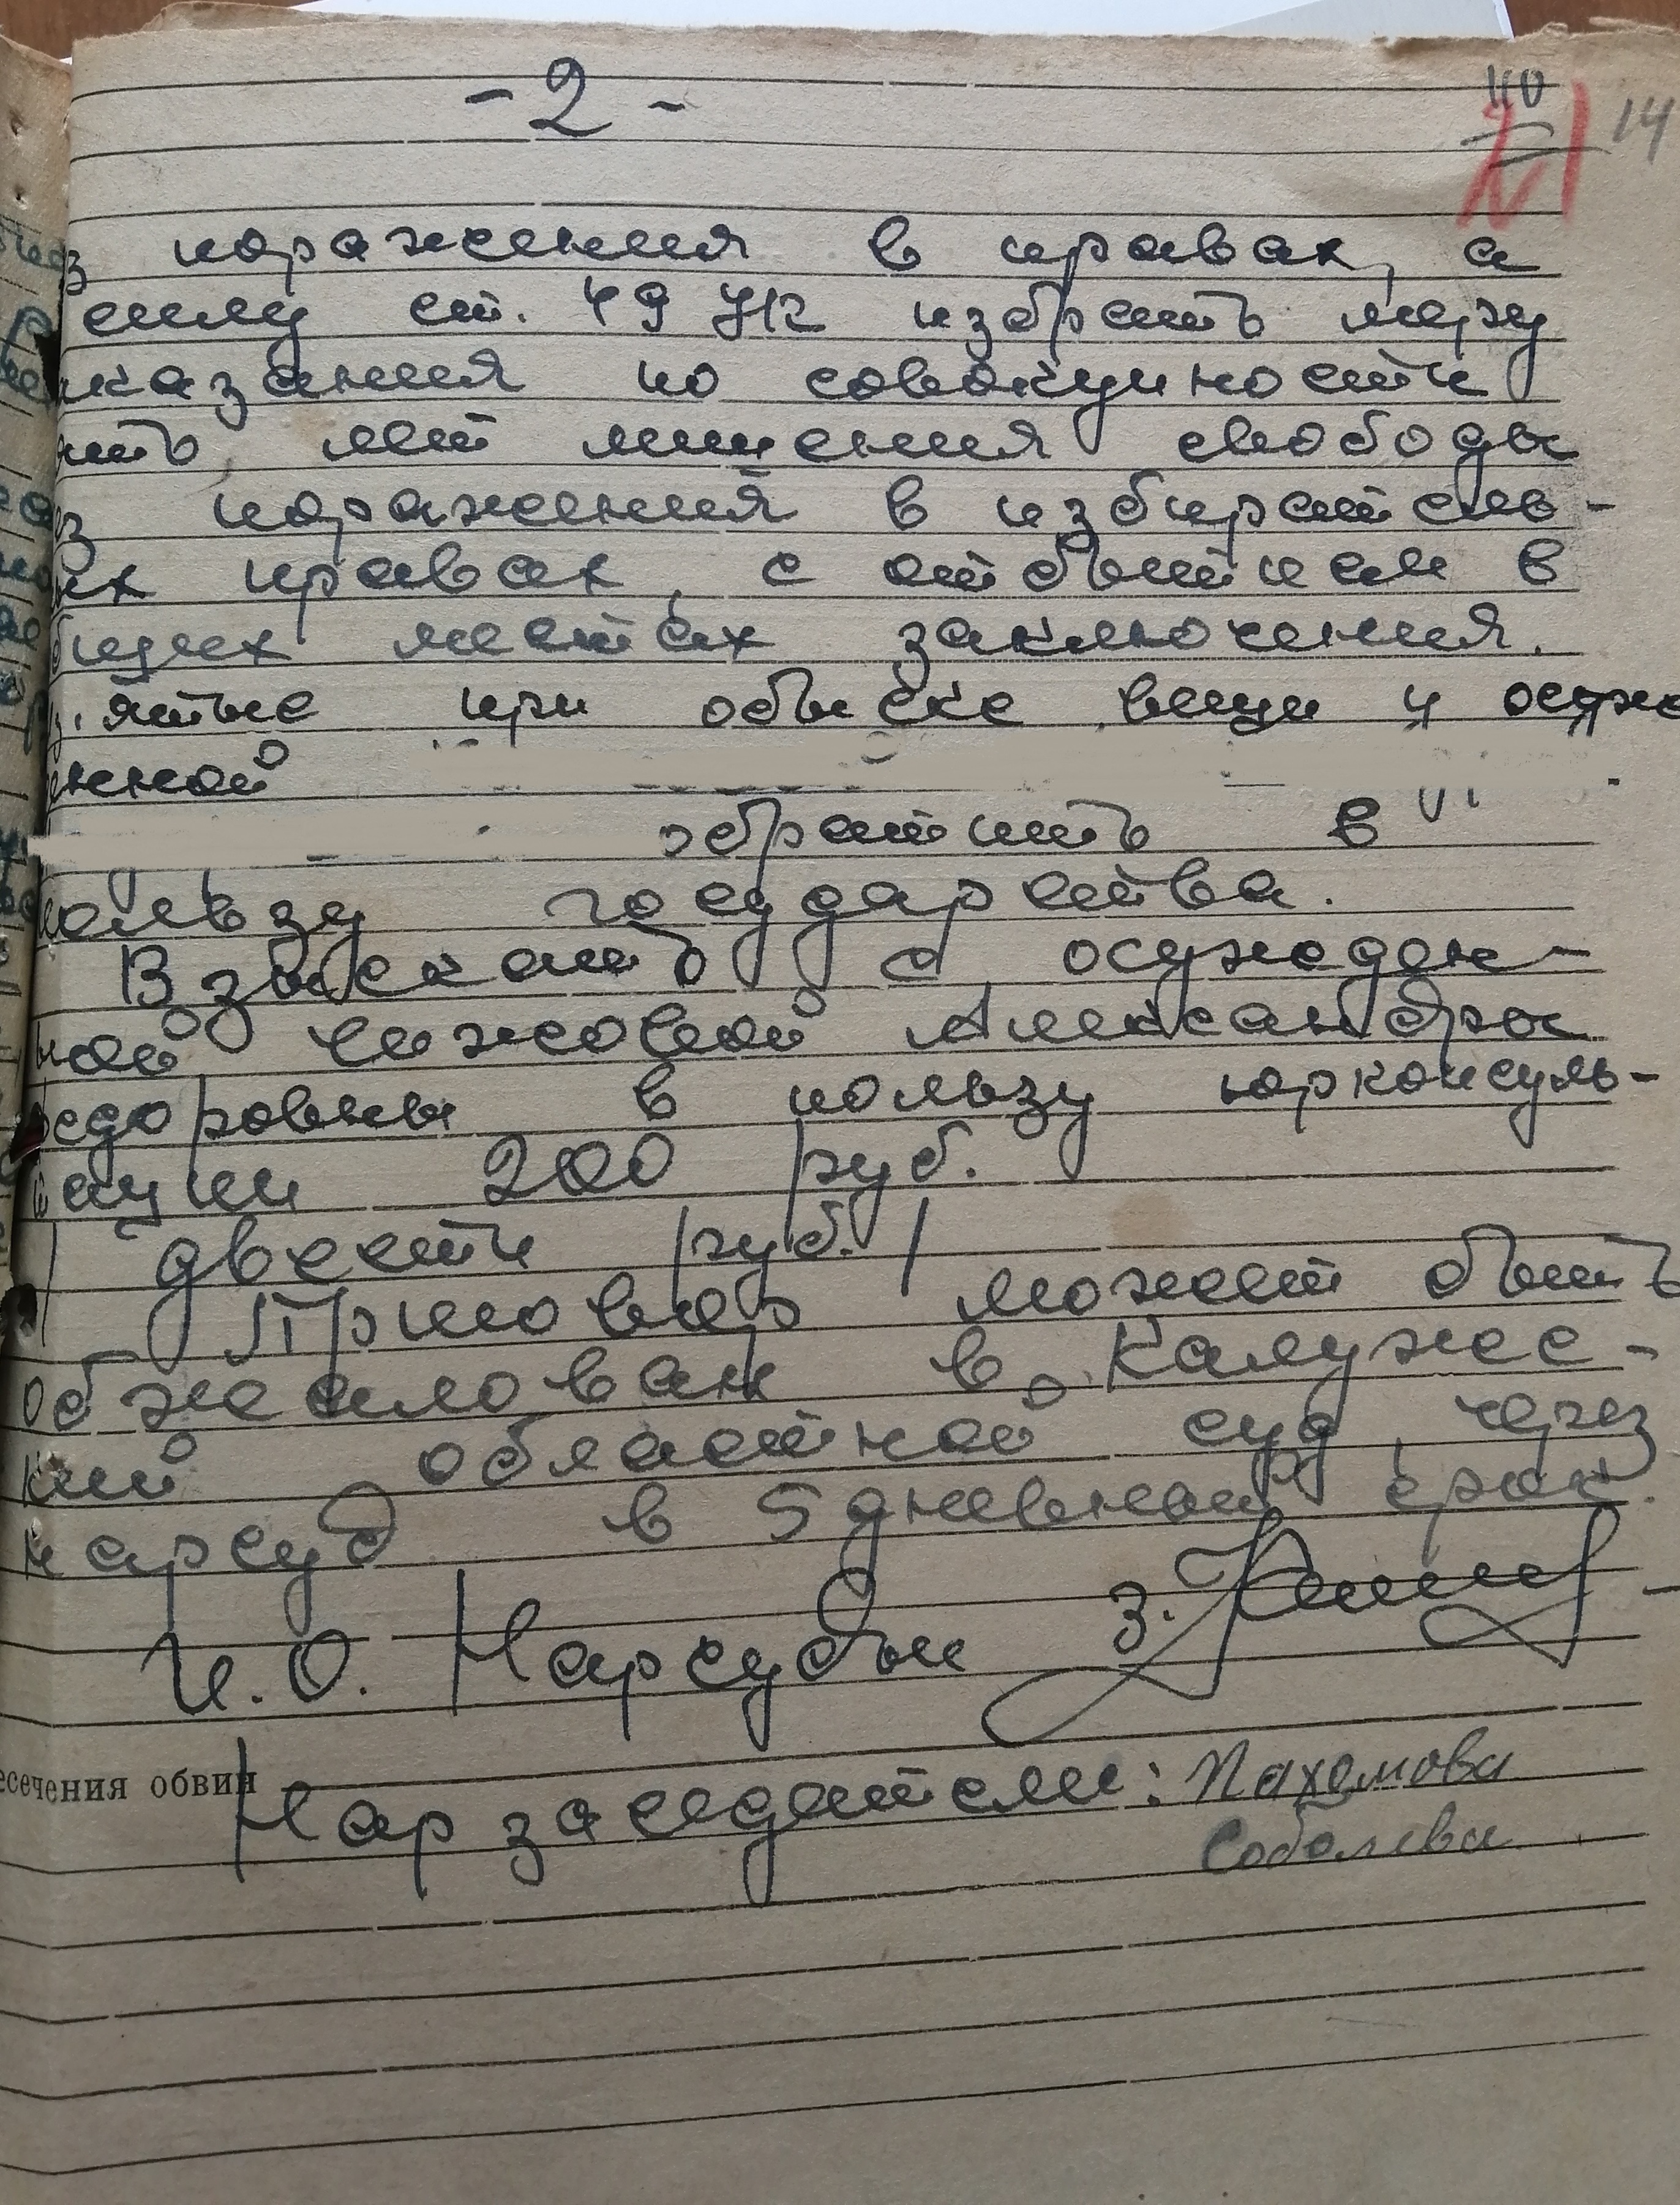 - 2 -
40
21
14
з поражения в правах, а
силу ст. 49 УК избрать меру
казания по совокупности
ять лет лишения свободы
ез поражения в избиратель-
ых правах, с отбытием в
бщих местах заключения.
з,ятые при обыске вещи у осуж
енной
обратить в
пользу государства.
Взыскать с осужден-
ной Чижовой Александры
едоровны в пользу юрконсуль-
тации 200 руб.
/ двести руб. /
Приговор может быть
обжалован в Калужс-
кий областной суд, через
нарсуд в 5 дневный срок.
И.О. Нарсудьи З.
есечения обвин
Нар заседатели: Пахомова
Соболева